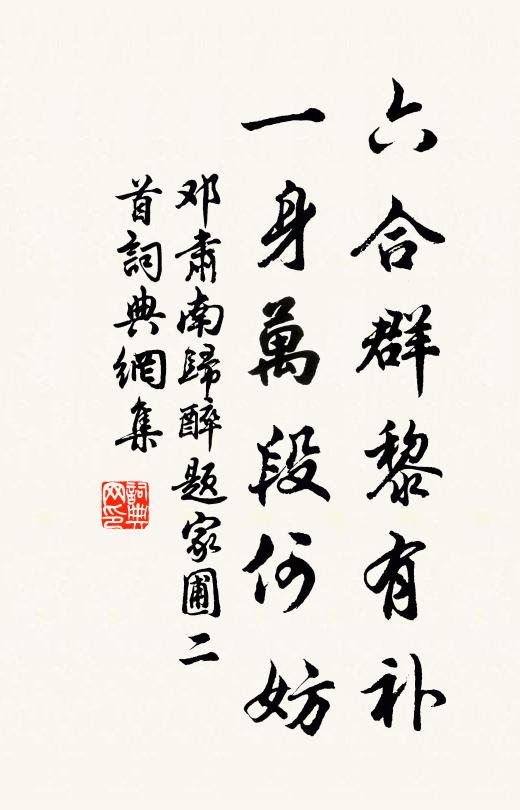 六合群黎有补
一身萬段何妨
邓肅南歸醉题家圃二
首詞典網集
詞典网印